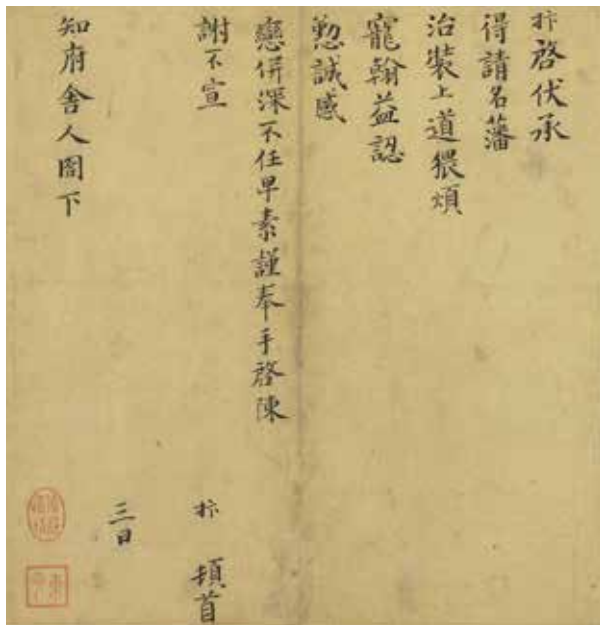 抃啓伏承
得請名藩
治裝上道猥煩
寵翰益認
懃誠感
戀併深不任早素謹奉手啓陳
謝不宣　抃　頓首
三日
知府舍人閤下